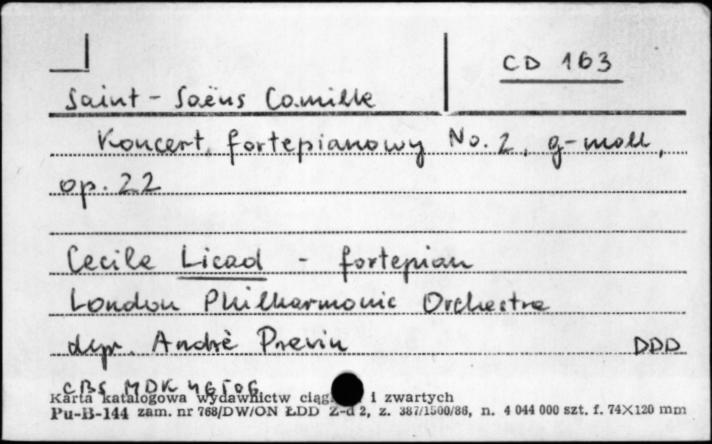 CD 163
Saint-Saëns Camille
Koncert fortepianowy No. 2, g-moll,
op. 22
Cecile Licad - fortepian
London Philharmonic Orchestra
dyr. Andrè Previn
DDD
CBS MDK 46506
Karta katalogowa wydawnictw i zwartych
Pu-B-144 zam. nr 768/DW/ON ŁDD Z-d 2, z. 387/1500/86, n. 4 044 000 szt. f. 74×120 mm